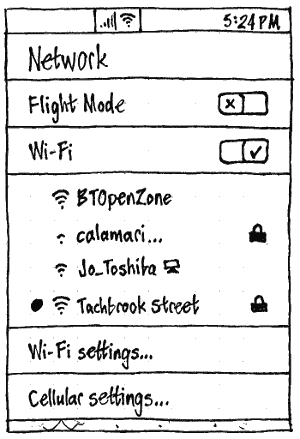 5:24PM
Network
Flight Mode
Wi-Fi
BTOpenZone
calamari...
Jo_Toshiba
Tachbrook Street
Wi-Fi settings...
Cellular settings...